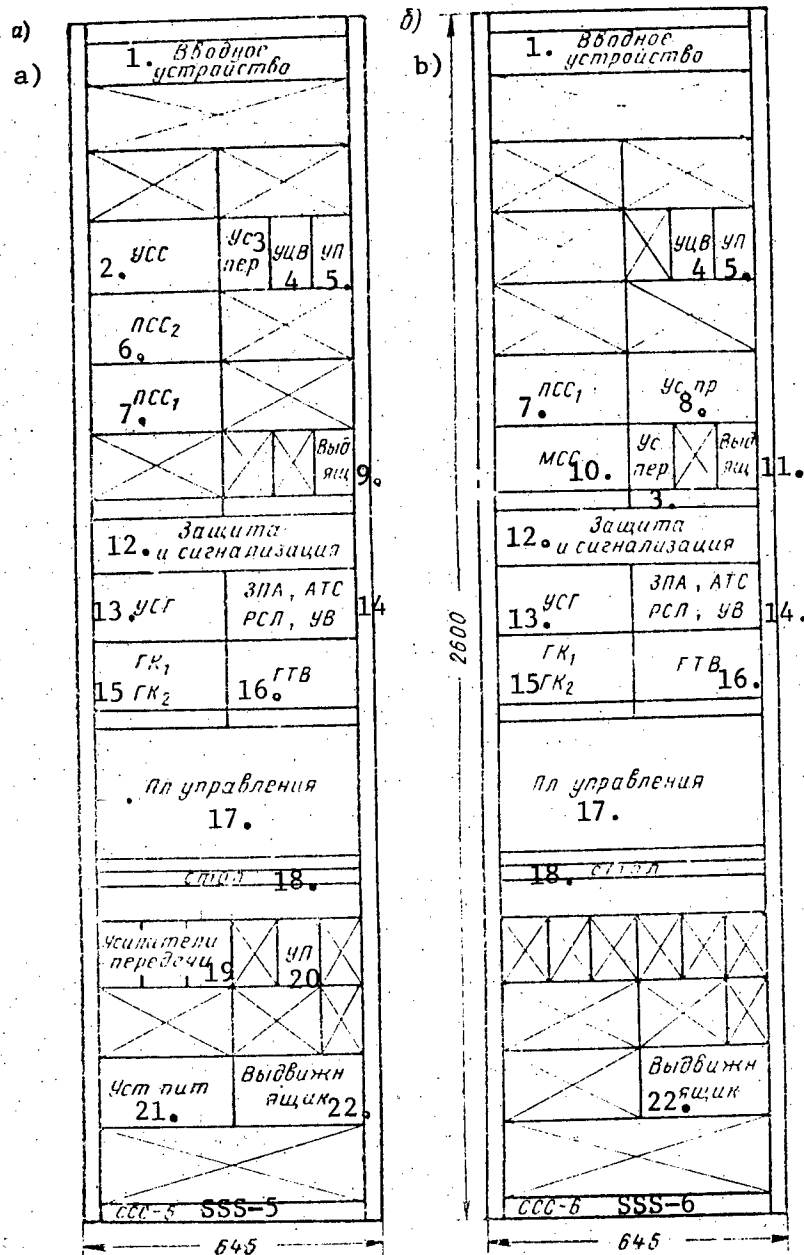 а)
a)
1. Вводное
устройство
2. УСС
Ус 3
пер
УЦВ
4
УП
5.
ПСС₂
6.
ПСС₁
7.
Выд
ящ 9.
Защита
12. и сигнализация
13. УСГ
ЗПА, АТС
РСЛ, УВ
14
ГК₁
15 ГК₂
16. ГТВ
Пл управления
17.
стол 18.
Усилители
передачи 19
УП
20
Уст пит
21.
Выдвижн
ящик 22.
ССС-5 SSS-5
645
б)
b)
1. Вводное
устройство
УЦВ
4
УП
5.
ПСС₁
7.
Ус пр
8.
МСС 10.
Ус
пер
3.
Выд
ящ 11.
Защита
12. и сигнализация
13. УСГ
ЗПА, АТС
РСЛ, УВ
14.
ГК₁
15 ГК₂
ГТВ 16.
Пл управления
17.
18. стол
Выдвижн
22. ящик
ССС-6 SSS-6
645
2600